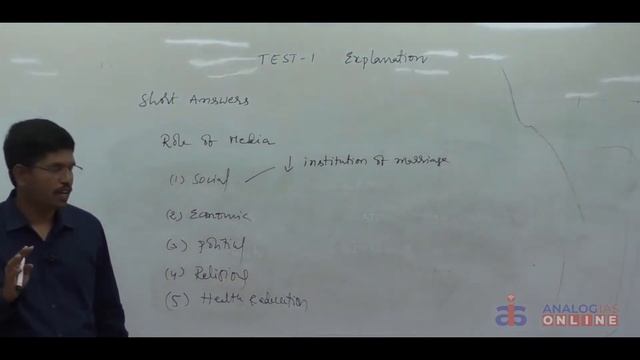 TEST-1 Explanation
Short Answers
Role of Media
(1) Social ↓ institution of marriage
(2) Economic
(3) Political
(4) Religious
(5) Health & education
ANALOG IAS
ONLINE